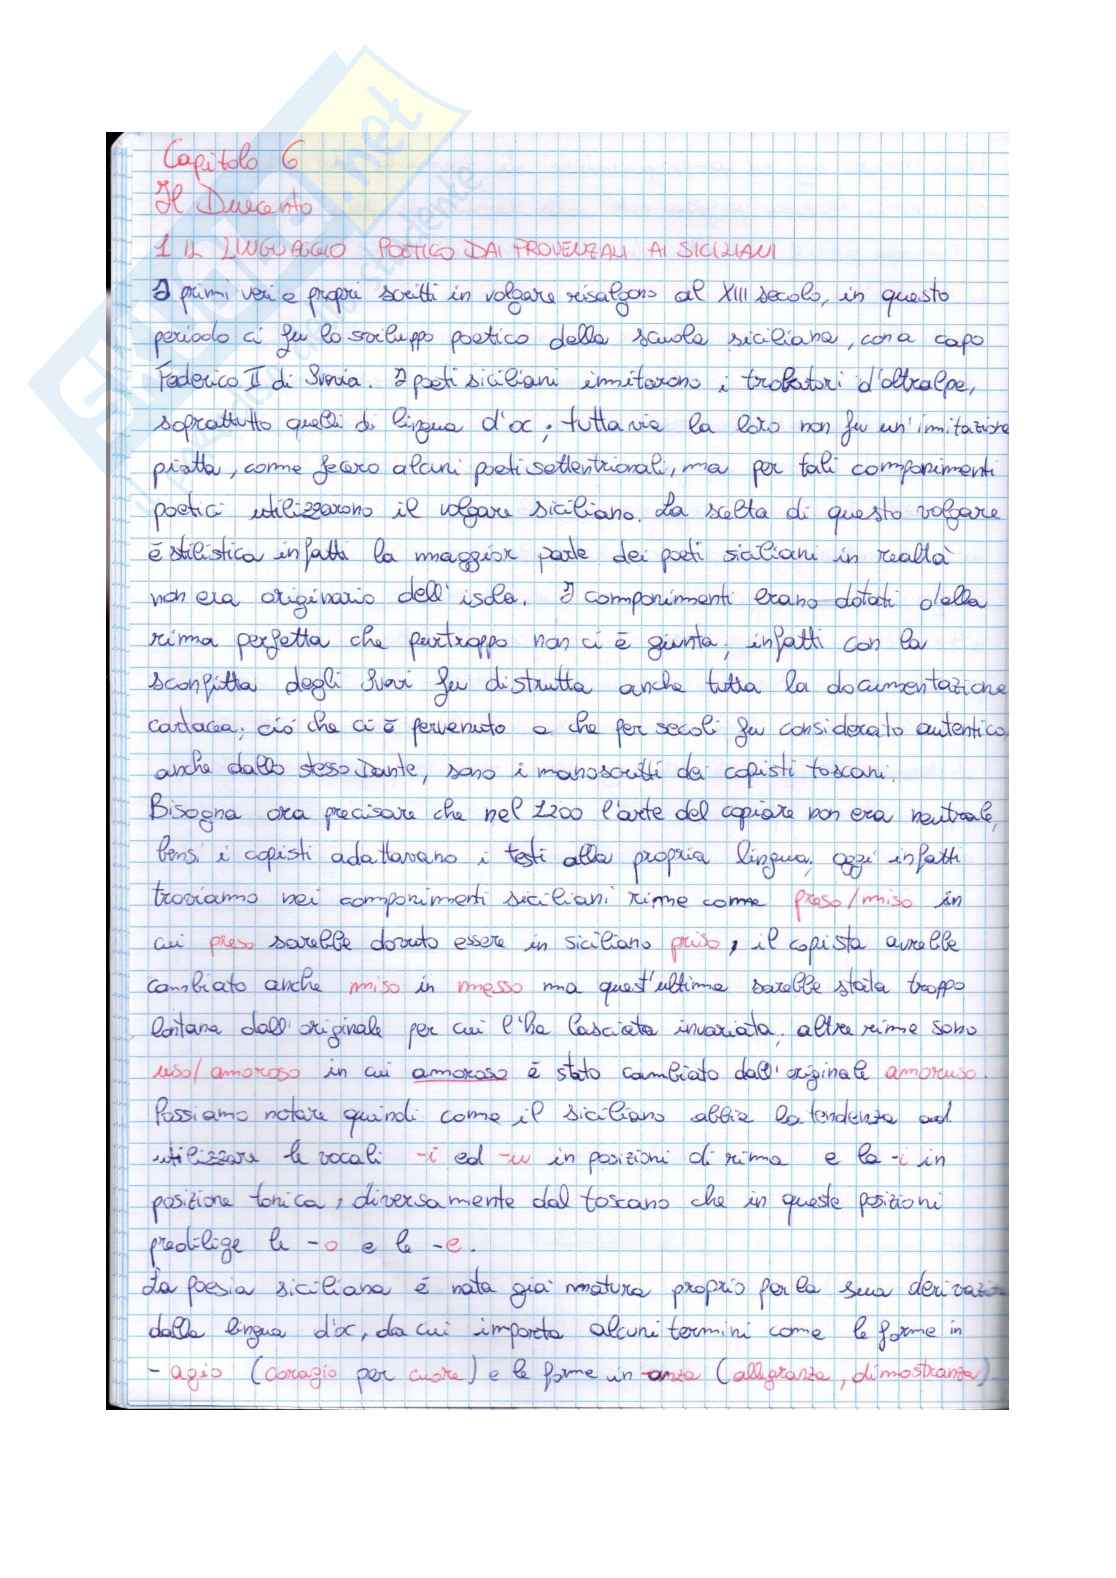 Capitolo 6
Il Duecento
1 IL LINGUAGGIO POETICO DAI PROVENZALI AI SICILIANI
I primi veri e propri scritti in volgare risalgono al XIII secolo, in questo
periodo ci fu lo sviluppo poetico della scuola siciliana, con a capo
Federico II di Svevia. I poeti siciliani imitarono i trobatori d'oltralpe,
soprattutto quelli di lingua d'oc; tuttavia la loro non fu un'imitazione
piatta, come fecero alcuni poeti settentrionali, ma per tali componimenti
poetici utilizzarono il volgare siciliano. La scelta di questo volgare
è stilistica infatti la maggior parte dei poeti siciliani in realtà
non era originario dell'isola. I componimenti erano dotati della
rima perfetta che purtroppo non ci è giunta, infatti con la
sconfitta degli Svevi fu distrutta anche tutta la documentazione
cartacea; ciò che ci è pervenuto e che per secoli fu considerato autentico,
anche dallo stesso Dante, sono i manoscritti dei copisti toscani.
Bisogna ora precisare che nel 1200 l'arte del copiare non era neutrale,
bensì i copisti adattavano i testi alla propria lingua, oggi infatti
troviamo nei componimenti siciliani rime come preso/miso in
cui preso sarebbe dovuto essere in siciliano priso, il copista avrebbe
cambiato anche miso in messo ma quest'ultima sarebbe stata troppo
lontana dall'originale per cui l'ha lasciata invariata, altre rime sono
uso/amoroso in cui amoroso è stato cambiato dall'originale amoruso.
Possiamo notare quindi come il siciliano abbia la tendenza ad
utilizzare le vocali -i ed -u in posizioni di rima e la -i in
posizione tonica, diversamente dal toscano che in queste posizioni
predilige le -o e le -e.
La poesia siciliana è nata già matura proprio per la sua derivazione
dalla lingua d'oc, da cui importa alcuni termini come le forme in
-agio (coragio per cuore) e le forme in -anza (allegranza, dimostranza)
SKUOLA.net